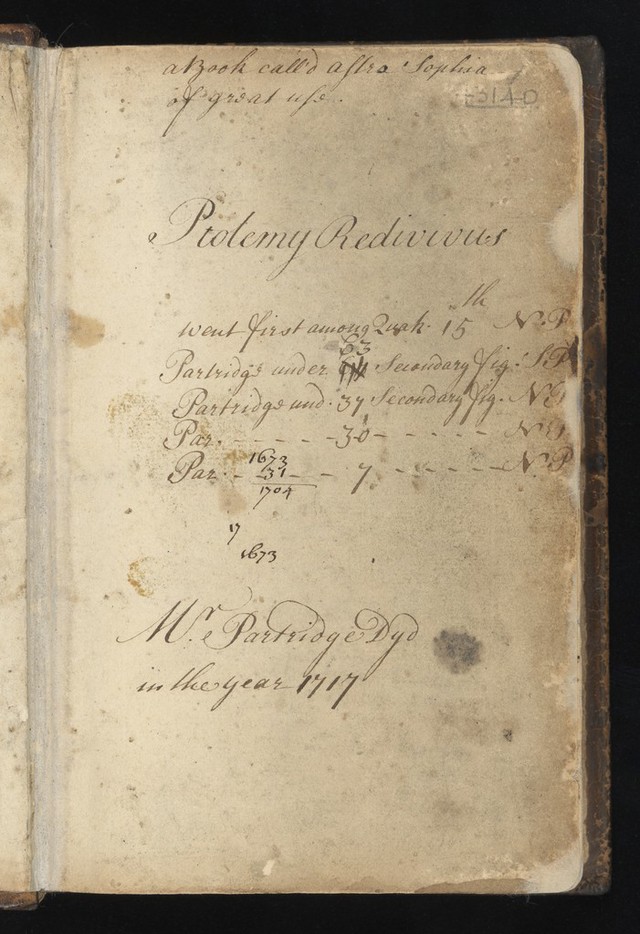 a Book call'd astro Sophia
of great use.
5140
Ptolemy Redivivus
th
went first among Quak. 15 N. P
63
Partridge under Secondary fig: S. P
Partridge und. 37 Secondary fig. N
Par. - - - - - 30 - - - - - - N
1673
Par. - - 31 - - 7 - - - - - - N. P
1704
17
1673
Mr. Partridge Dyd
in the year 1717